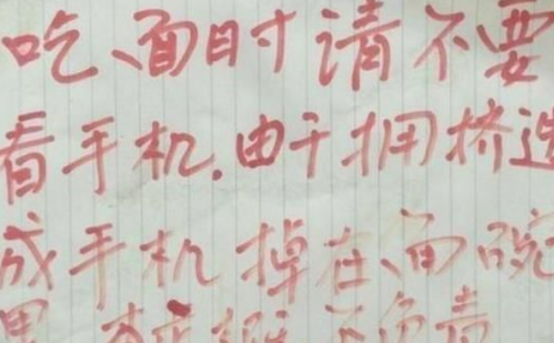 吃面时请不要
看手机.由于拥挤造
成手机掉在面碗
里 概不负责